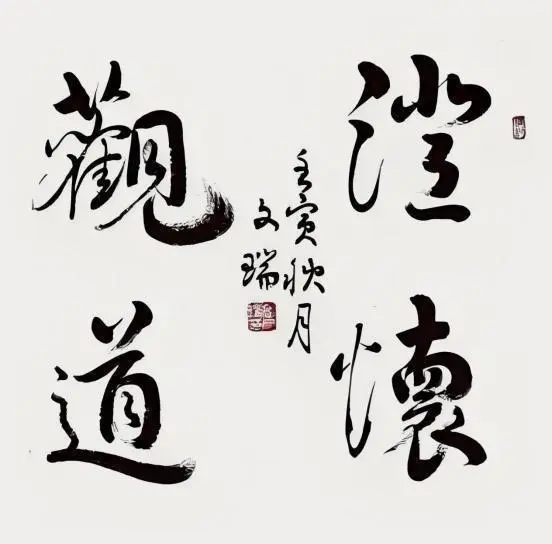 澄懷
觀道
壬寅秋月
文瑞